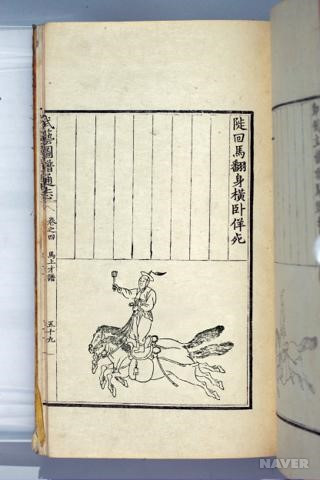 陡回馬翻身橫卧佯死
武藝圖譜通志
卷之四
馬上才譜
五十九
NAVER